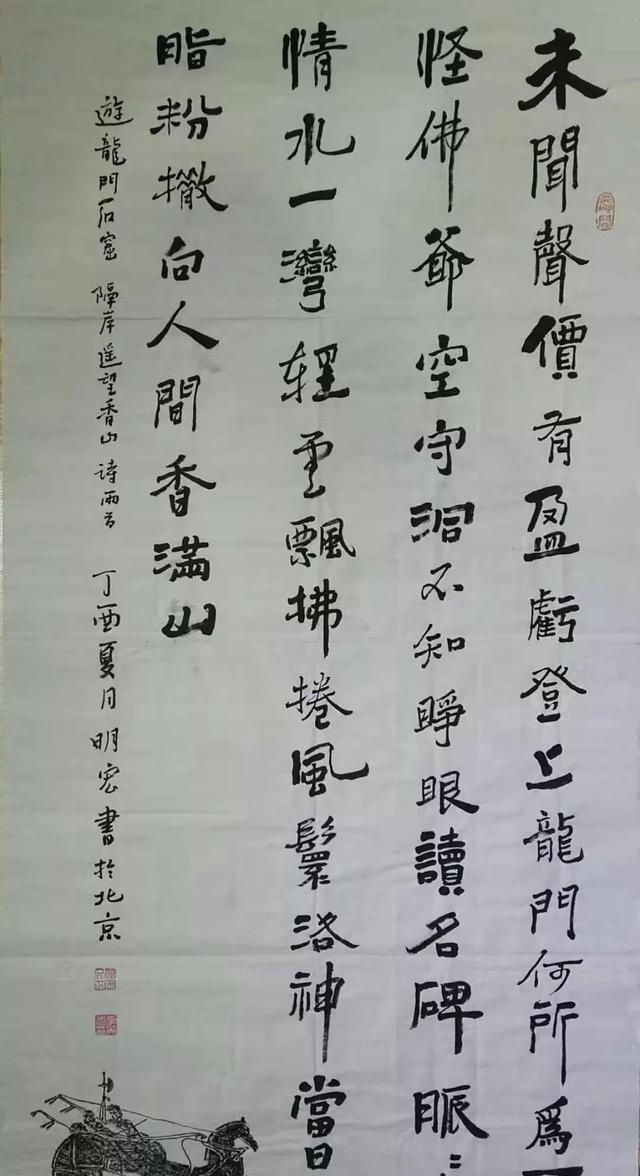 未聞聲價有盈虧登上龍門何所為
怪佛爺空守洞不知睜眼讀名碑脈
情水一灣輕雲飄拂捲風鬟洛神當日
脂粉撒向人間香滿山
遊龍門石窟 隔岸遥望香山 诗兩首 丁酉夏月 明宏書於北京